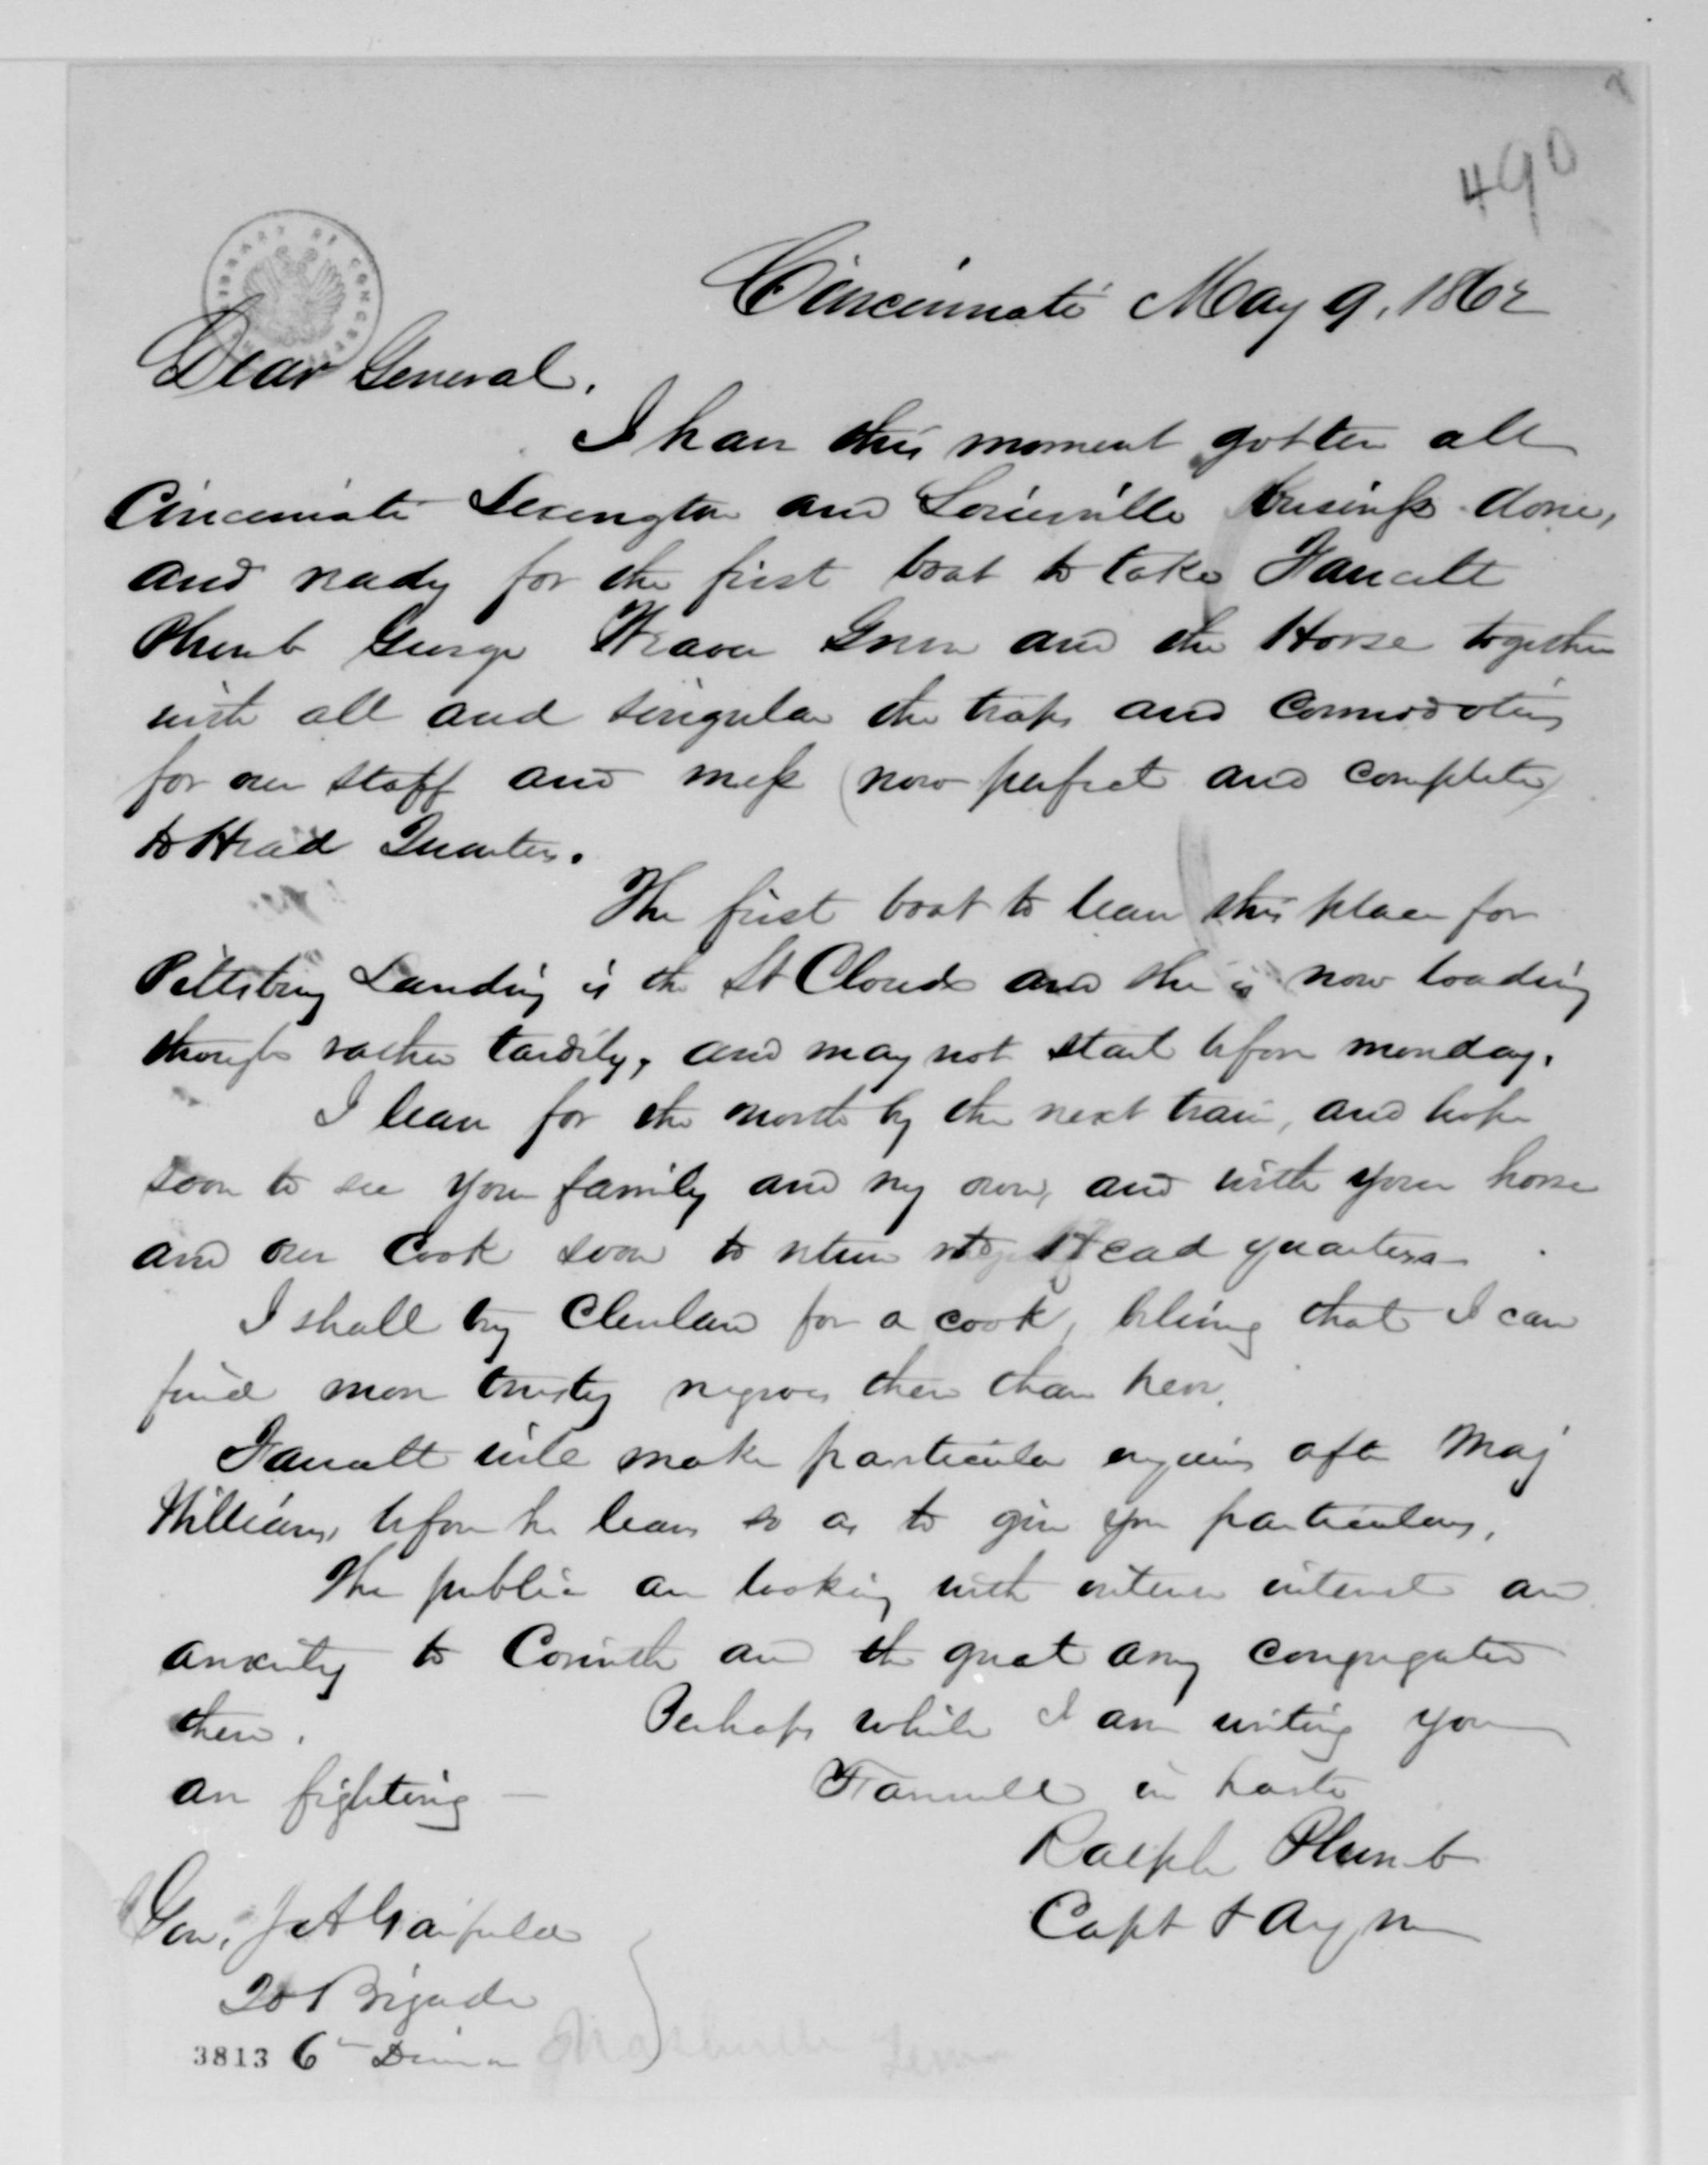 490
LIBRARY OF CONGRESS
Cincinnati May 9, 1862
Dear General.
I have this moment gotten all
Cincinnati Lexington and Louisville business done,
and ready for the first boat to take Farralt
Plumb George Green and the Horse together
with all and singular the traps and commodities
for our staff and mess (now perfect and complete)
to Head Quarters.
The first boat to leave this place for
Pittsburg Landing is the St Cloud and she is now loading
though rather tardily, and may not start before monday.
I leave for the north by the next train, and hope
soon to see your family and my own, and with your horse
and our Cook soon to return to Head quarters
I shall try Cleveland for a cook, beleving that I can
find more trusty negroes there than here.
will make particular enquiry after Maj
Williams, before he leaves so as to give you particulars.
The public are looking with intense interest and
anxiety to Corinth and the great army congregated
there. Perhaps while I am writing you
are fighting — Farewell in haste
Ralph Plumb
Capt & A Q M
Gen. J A Garfield
20 Brigade
3813 6th Division